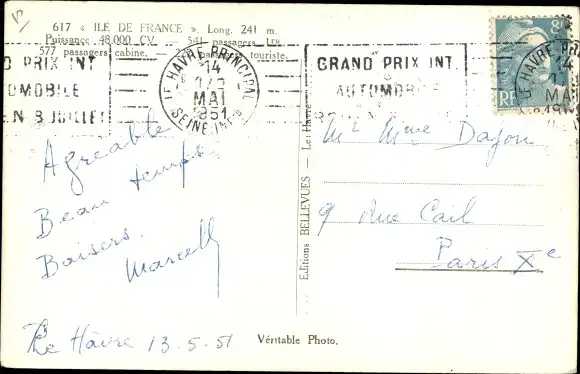 617 « ILE DE FRANCE ». Long. 241 m.
Puissance 48.000 CV. — 541 passagers Ire
577 passagers cabine. — passagers touriste.
D PRIX INT
TOMOBILE
EN 8 JUILLET
LE HAVRE PRINCIPAL
14
MAI
1951
SEINE INFRE
GRAND PRIX INT.
AUTOMOBILE
8F
RF
LE HAVRE PR
14
MAI
Agréable
Beau temps
Baisers.
Marcell
Le Hâvre 13-5-51
Editions BELLEVUES — Le Havre
Mr Mme Dajon
9 Rue Cail
Paris Xe
Véritable Photo.